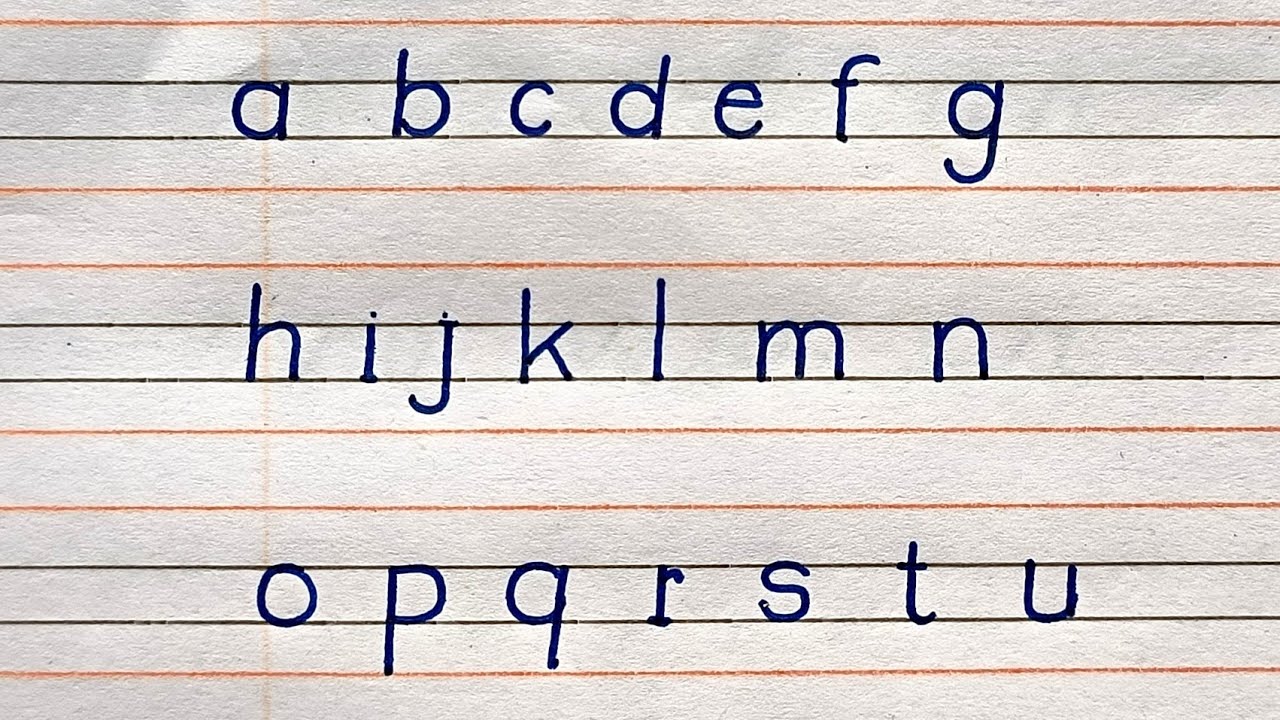 a b c d e f g
h i j k l m n
o p q r s t u